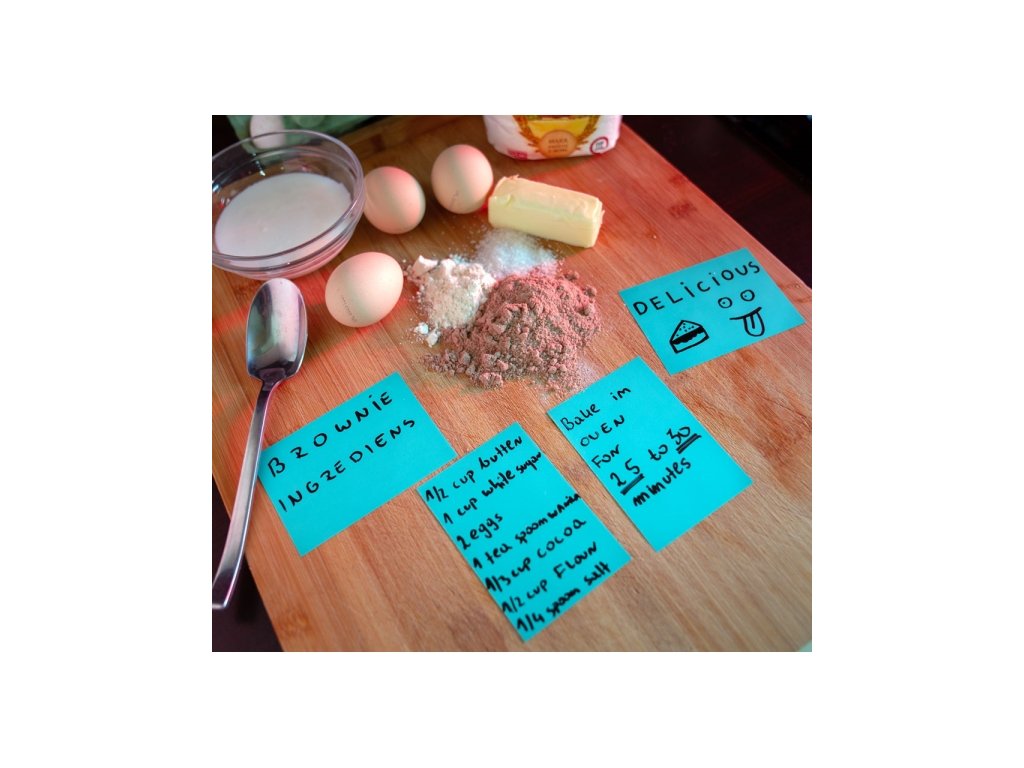 BROWNIE
INGREDIENS
1/2 cup butter
1 cup white sugar
2 eggs
1 tea spoon
1/3 cup COCOA
1/2 cup FLOUR
1/4 spoon salt
Bake in
OVEN
FOR
25 to 30
minutes
DELICIOUS